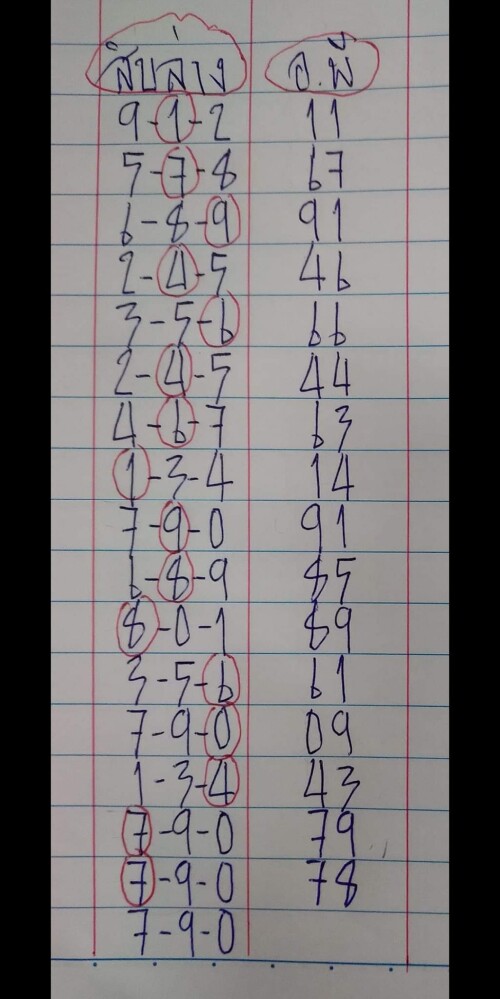 สิบล่าง อ.พี่
9-1-2 11
5-7-8 67
6-8-9 91
2-4-5 46
3-5-6 66
2-4-5 44
4-6-7 63
1-3-4 14
7-9-0 91
6-8-9 85
8-0-1 89
3-5-6 61
7-9-0 09
1-3-4 43
7-9-0 79
7-9-0 78
7-9-0